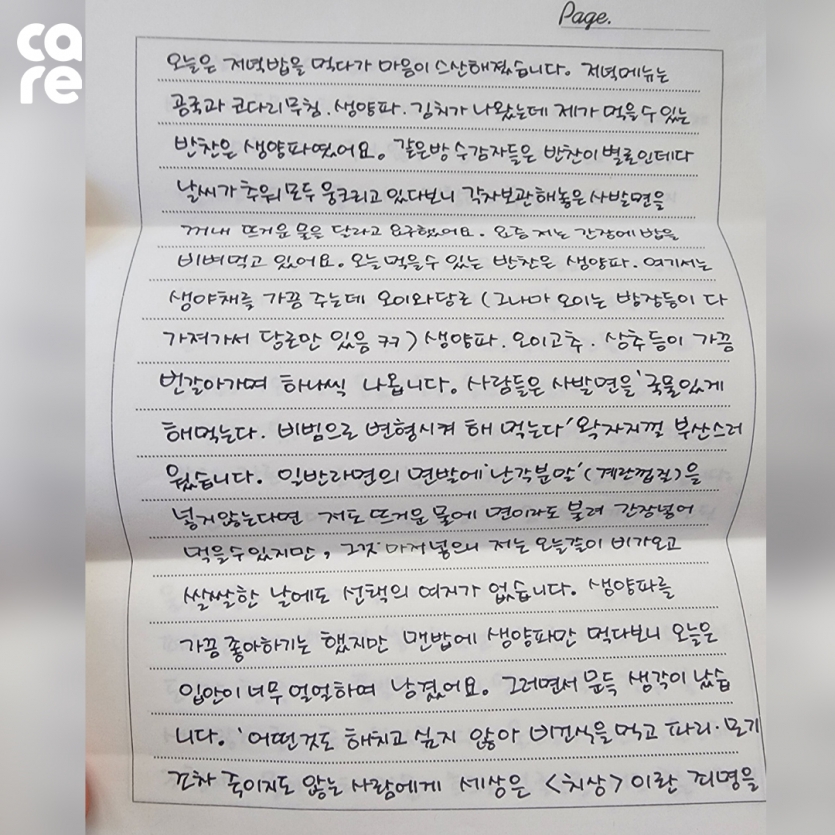 care
Page.
오늘은 저녁밥을 먹다가 마음이 스산해졌습니다. 저녁메뉴는
콩국과 코다리무침. 생양파. 김치가 나왔는데 제가 먹을 수 있는
반찬은 생양파였어요. 같은방 수감자들은 반찬이 별로인데다
날씨가 추워 모두 웅크리고 있다보니 각자보관해놓은 사발면을
꺼내 뜨거운 물을 달라고 요구했어요. 요즘 저는 간장에 밥을
비벼먹고 있어요. 오늘 먹을수 있는 반찬은 생양파. 여기서는
생야채를 가끔 주는데 오이와당근 (그나마 오이는 방장들이 다
가져가서 당근만 있음 ㅋㅋ) 생양파. 오이고추. 상추등이 가끔
번갈아가며 하나씩 나옵니다. 사람들은 사발면을 '국물있게
해먹는다. 비빔으로 변형시켜 해 먹는다' 왁자지껄 부산스러
웠습니다. 일반라면의 면발에 '난각분말' (계란껍질)을
넣지않는다면 저도 뜨거운 물에 면이라도 불려 간장넣어
먹을수있지만, 그것마저 넣으니 저는 오늘같이 비가오고
쌀쌀한 날에도 선택의 여지가 없습니다. 생양파를
가끔 좋아하기는 했지만 맨밥에 생양파만 먹다보니 오늘은
입안이 너무 얼얼하여 남겼어요. 그러면서 문득 생각이 났습
니다. '어떤것도 해치고 싶지 않아 비건식을 먹고 파리·모기
조차 죽이지도 않는 사람에게 세상은 <치상> 이란 죄명을